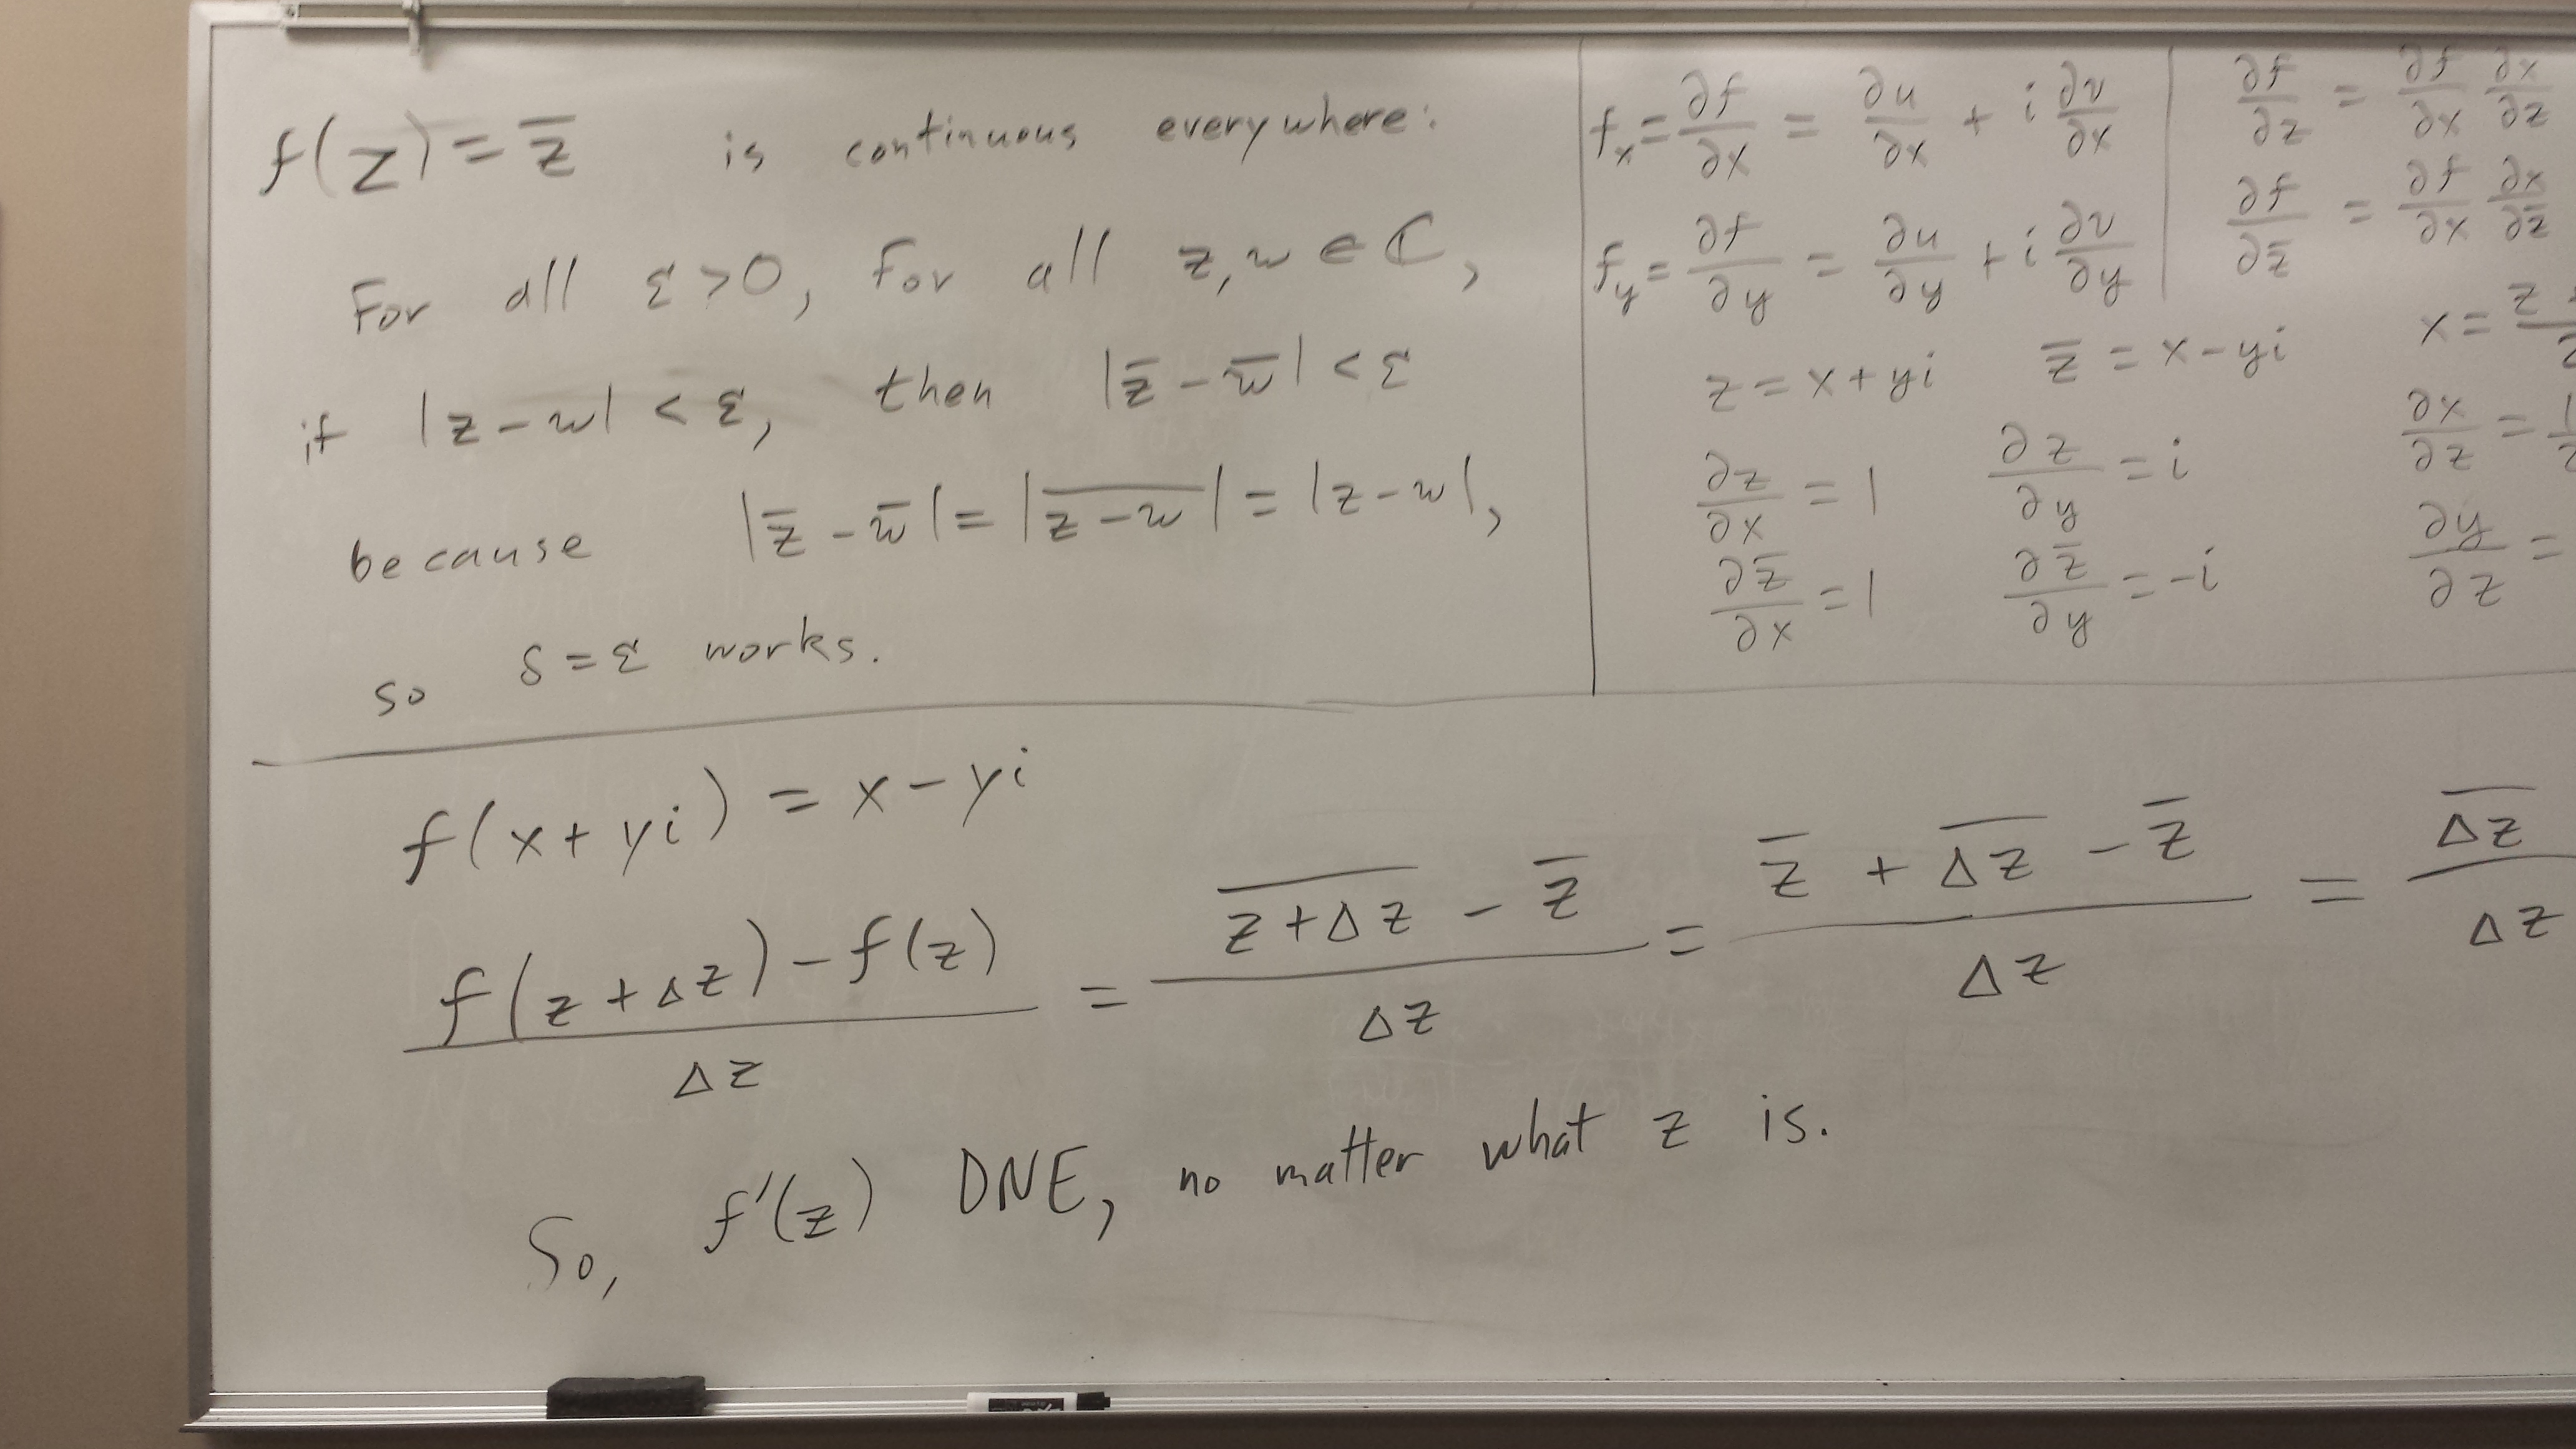 f(z) = z̅ is continuous everywhere:
For all ε > 0, for all z, w ∈ ℂ,
if |z - w| < ε, then |z̅ - w̅| < ε
because |z̅ - w̅| = |\overline{z - w}| = |z - w|,
so δ = ε works.
f_x = ∂f/∂x = ∂u/∂x + i ∂v/∂x
f_y = ∂f/∂y = ∂u/∂y + i ∂v/∂y
z = x + yi z̅ = x - yi
∂z/∂x = 1 ∂z/∂y = i
∂z̅/∂x = 1 ∂z̅/∂y = -i
∂f/∂z = ∂f/∂x ∂x/∂z
∂f/∂z̅ = ∂f/∂x ∂x/∂z̅
x = z
∂x/∂z = 1/2
∂y/∂z =
f(x + yi) = x - yi
(f(z + Δz) - f(z))/Δz = (\overline{z + Δz} - z̅)/Δz = (z̅ + \overline{Δz} - z̅)/Δz = \overline{Δz}/Δz
So, f'(z) DNE, no matter what z is.